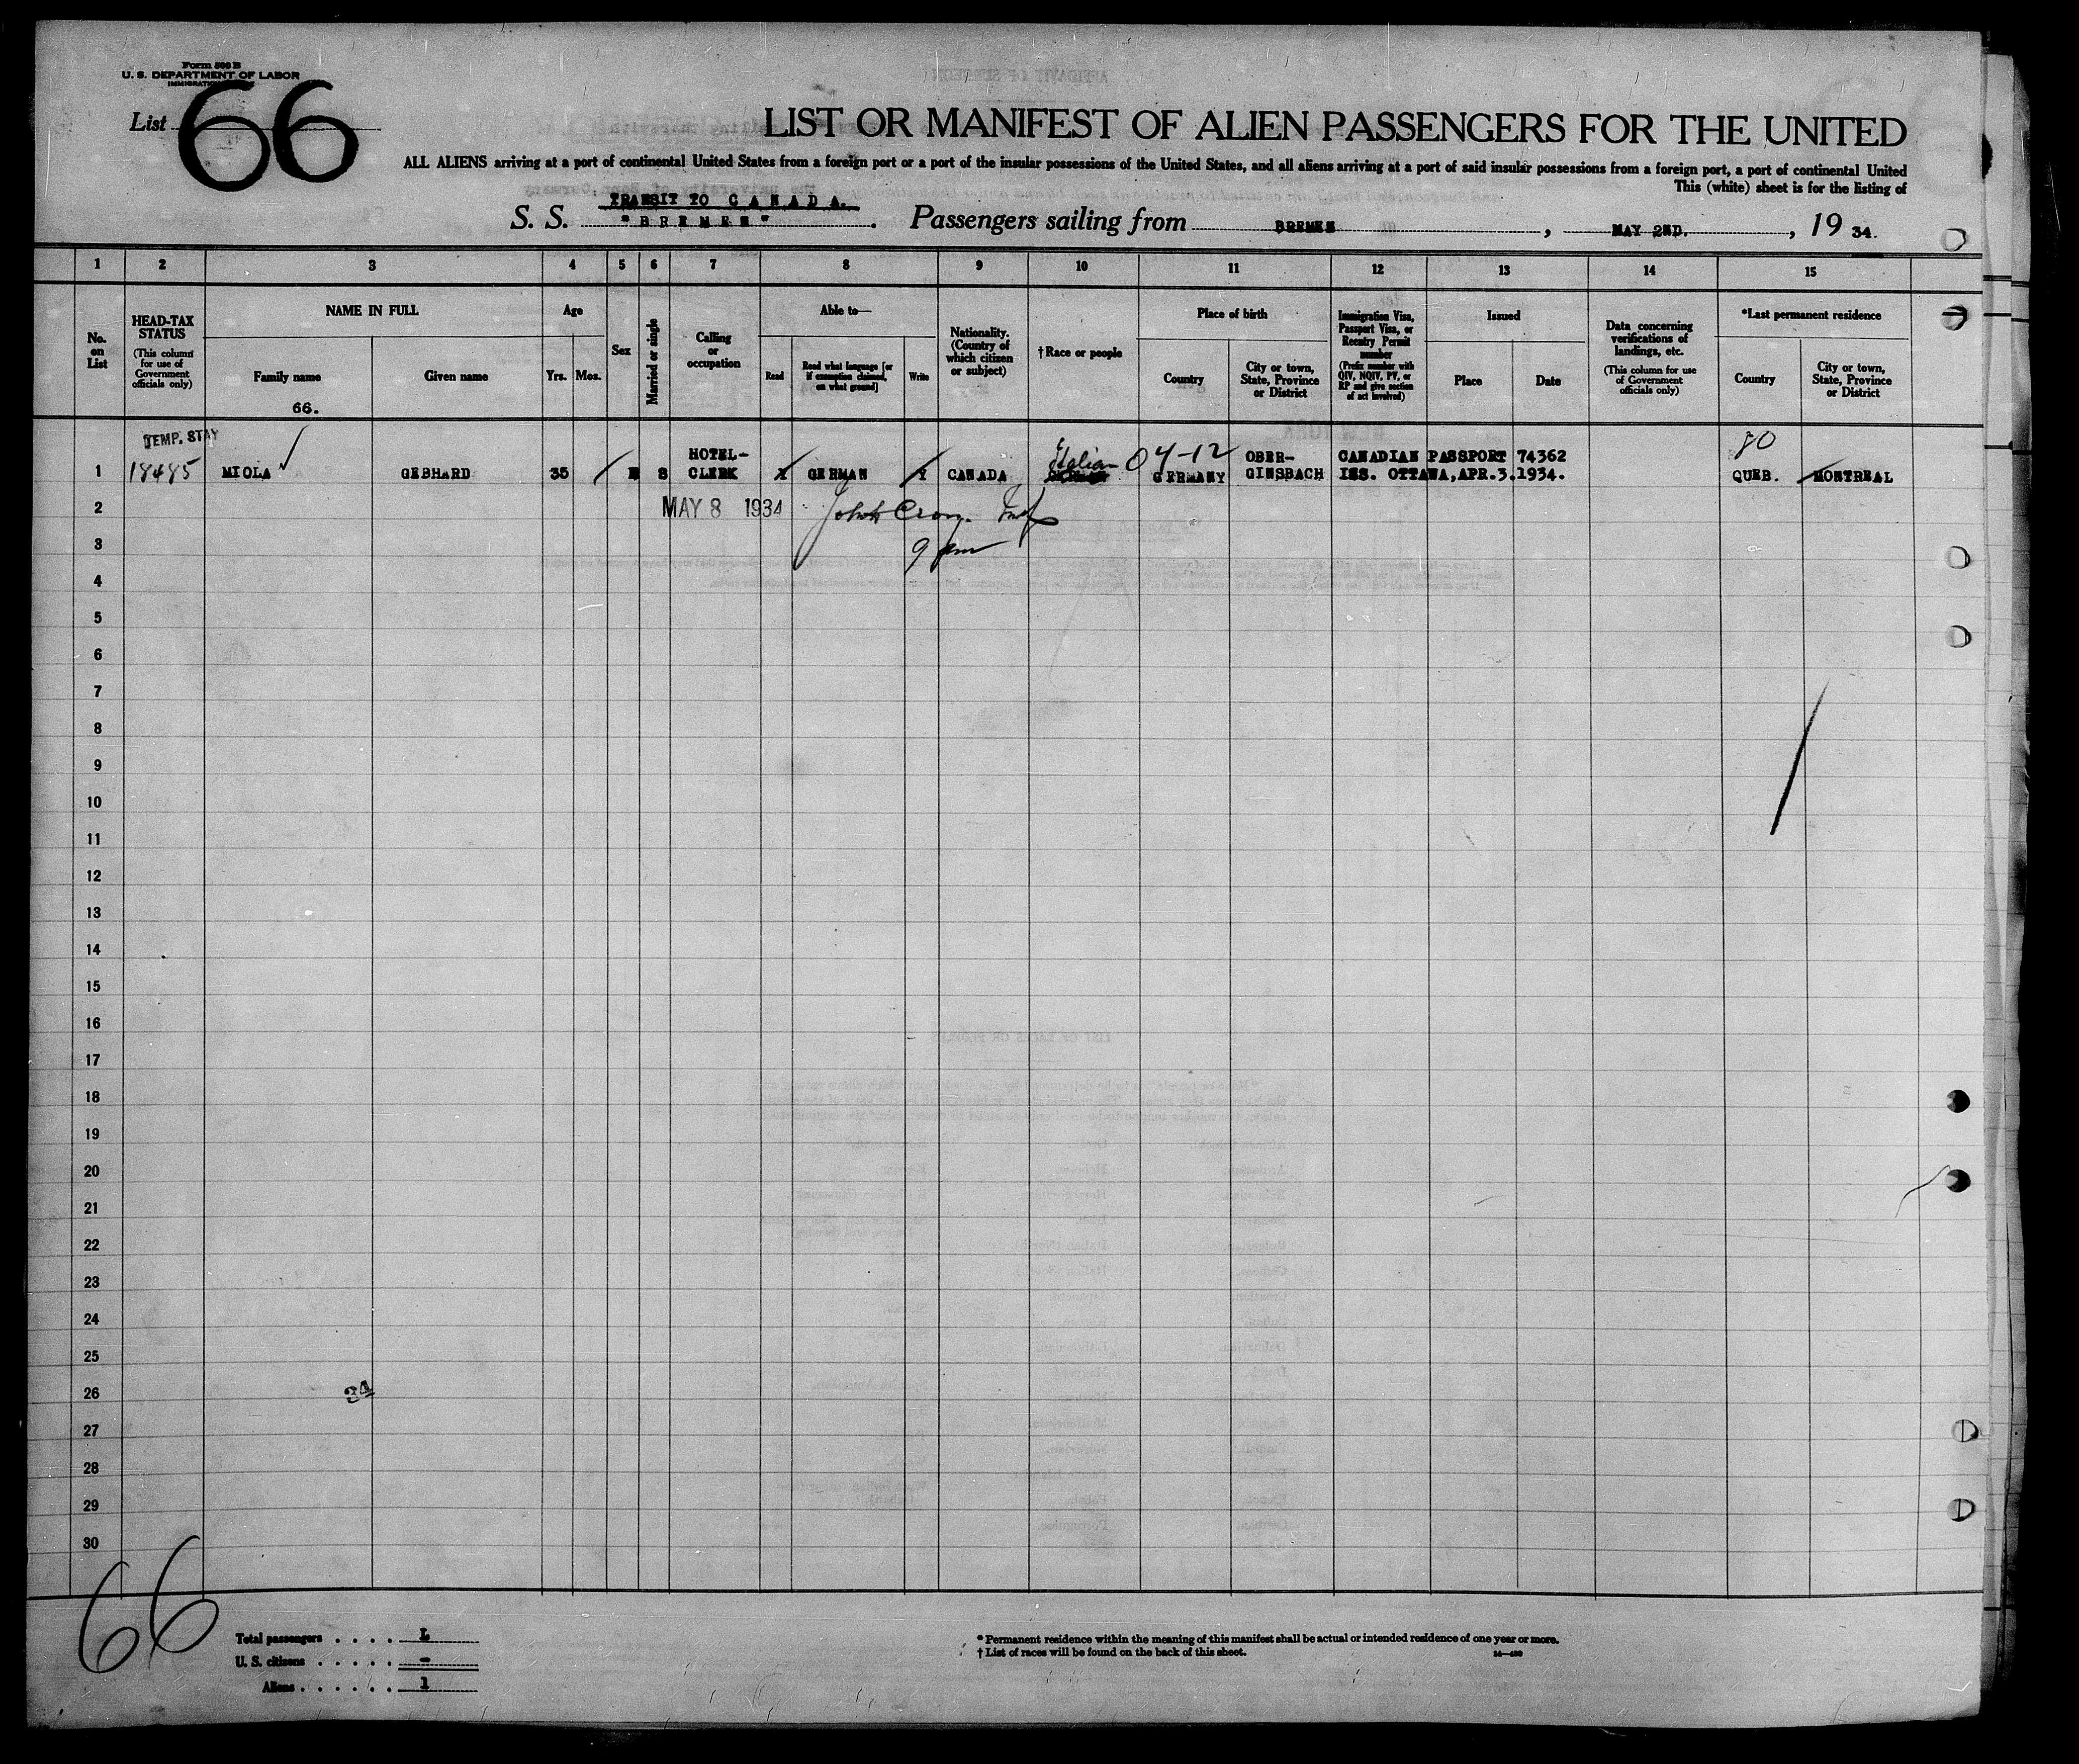 Form 500 B
U. S. DEPARTMENT OF LABOR
List 66
LIST OR MANIFEST OF ALIEN PASSENGERS FOR THE UNITED
ALL ALIENS arriving at a port of continental United States from a foreign port or a port of the insular possessions of the United States, and all aliens arriving at a port of said insular possessions from a foreign port, a port of continental United
This (white) sheet is for the listing of
TRANSIT TO CANADA.
S. S. "BREMEN". Passengers sailing from BREMEN, MAY 2ND., 19 34.
1 2 3 4 5 6 7 8 9 10 11 12 13 14 15
No. on List
HEAD-TAX STATUS (This column for use of Government officials only)
NAME IN FULL
Family name
66.
Given name
Age
Yrs. Mos.
Sex
Married or single
Calling or occupation
Able to—
Read
Read what language [or if exemption claimed, on what ground]
Write
Nationality. (Country of which citizen or subject)
†Race or people
Place of birth
Country
City or town, State, Province or District
Immigration Visa, Passport Visa, or Reentry Permit number (Prefix number with QIV, NQIV, PV, or RP and give section of act involved)
Issued
Place
Date
Data concerning verifications of landings, etc. (This column for use of Government officials only)
*Last permanent residence
Country
City or town, State, Province or District
TEMP. STAY
80
HOTEL- Italian 04-12 OBER- CANADIAN PASSPORT 74362
1 18485 MIOLA GEBHARD 35 S CLERK GERMAN CANADA GERMANY GINSBACH ISS. OTTAWA, APR.3.1934. QUEB. MONTREAL
2 MAY 8 1934 John
3 9 pm
4
5
6
7
8
9
10
11
12
13
14
15
16
17
18
19
20
21
22
23
24
25
26 34
27
28
29
30
66
Total passengers . . . . 1
U. S. citizens . . . . . -
Aliens . . . . . . 1
* Permanent residence within the meaning of this manifest shall be actual or intended residence of one year or more.
† List of races will be found on the back of this sheet.